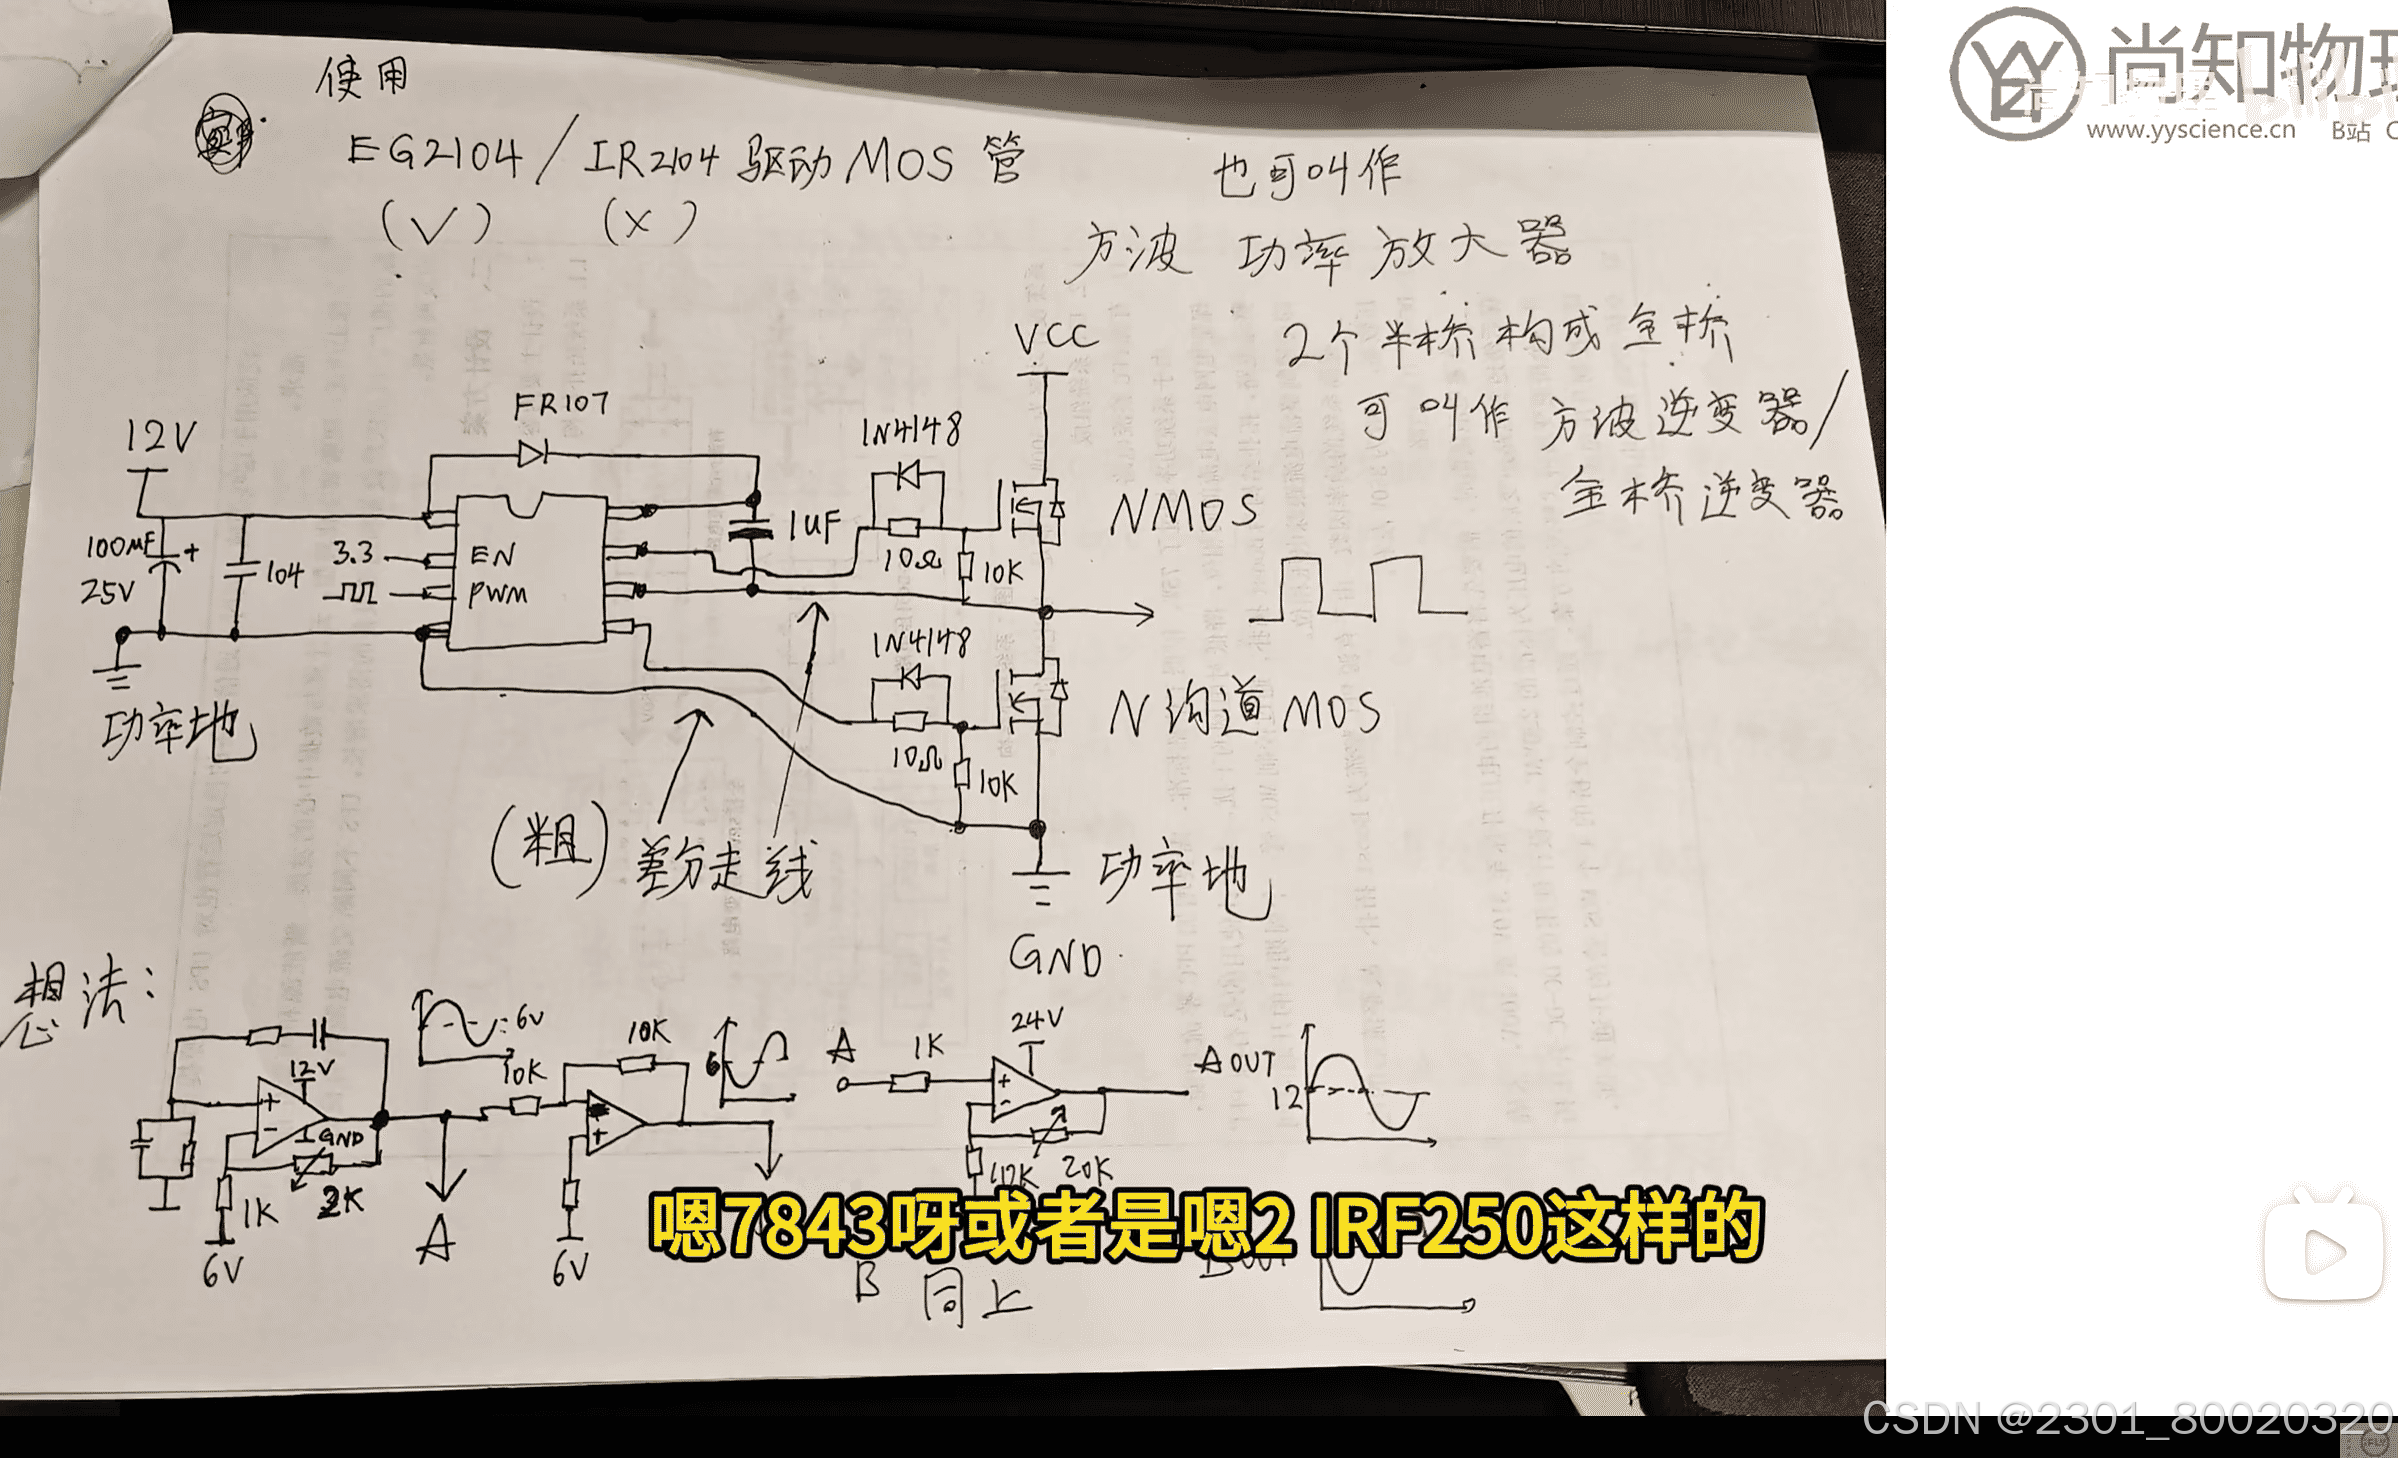 使用
EG2104 / IR2104 驱动MOS 管
(√) (×)
也可叫作
方波 功率放大器
2个半桥构成全桥
可叫作 方波逆变器/
全桥逆变器
VCC
FR107
12V
1N4148
NMOS
100μF +
25V
104
3.3
EN
PWM
1uF
10Ω
10K
1N4148
N沟道MOS
10Ω
10K
功率地
(粗) 差分走线
功率地
GND
想法:
6V
12V
GND
1K
2K
6V
A
10K
10K
6
6V
A
1K
24V
10K
20K
AOUT
12
B 同上
嗯7843呀或者是嗯2 IRF250这样的
尚知物理
www.yyscience.cn B站
CSDN @2301_80020320